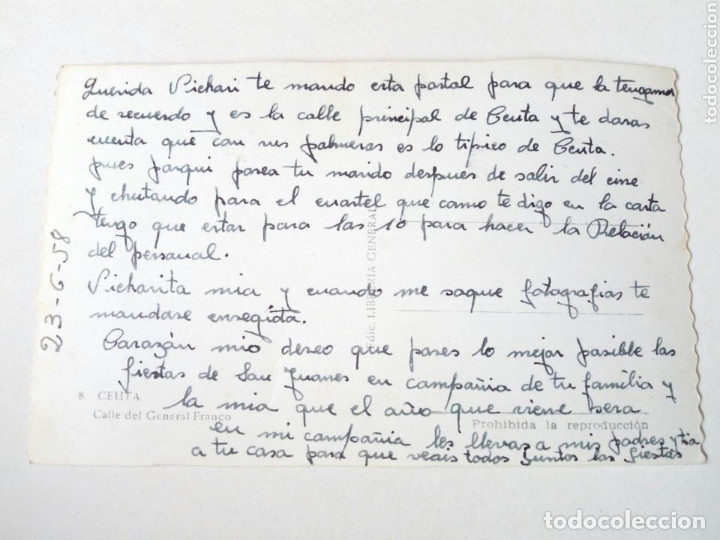 Querida Pichari te mando esta postal para que la tengamos
de recuerdo y es la calle principal de Ceuta y te daras
cuenta que con sus palmeras es lo tipico de Ceuta.
pues por qui pasea tu marido despues de salir del cine
y chutando para el cuartel que como te digo en la carta
tengo que estar para las 10 para hacer la Relación
del personal.
Picharita mia y cuando me saque fotografias te
mandare enseguida.
Corazón mio deseo que pases lo mejor posible las
fiestas de San Juanes en compañia de tu familia y
la mia que el año que viene sera
en mi compañia les llevas a mis padres y tia
a tu casa para que veais todos juntos las fiestas
23-6-58
8. CEUTA
Calle del General Franco
Edic. LIBRERIA GENERAL
Prohibida la reproducción
todocoleccion
todocoleccion.net